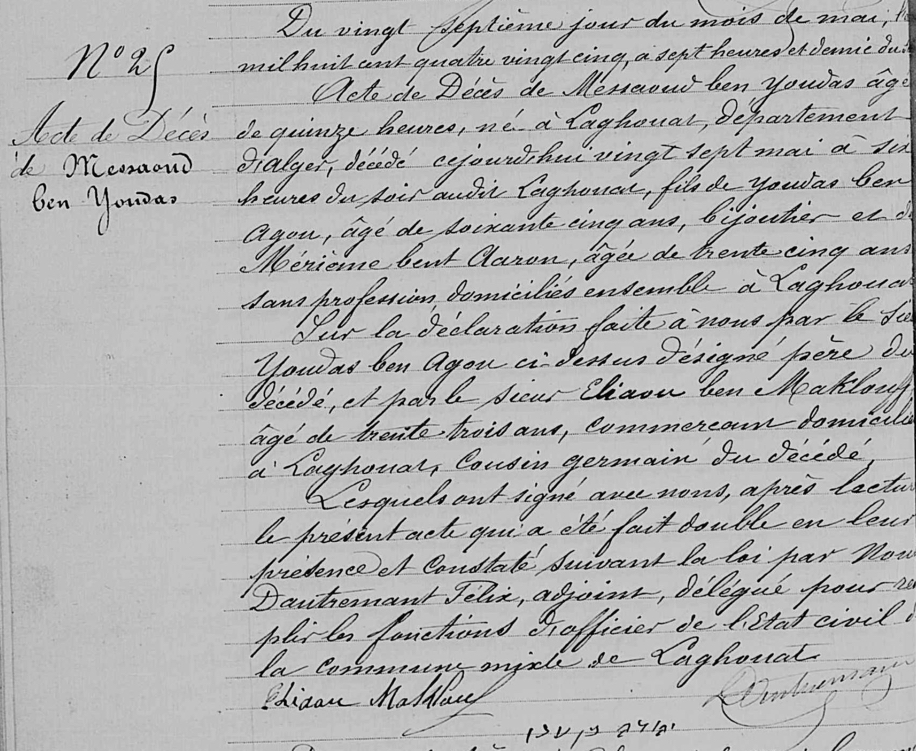 Du vingt septième jour du mois de mai,
mil huit cent quatre vingt cinq, à sept heures et demie du
N° 25
Acte de Décès de Messaoud ben Youdas âgé
Acte de Décès
de Messaoud
ben Youdas
de quinze heures, né à Laghouat, département
d'Alger, décédé cejourd'hui vingt sept mai à six
heures du soir audit Laghouat, fils de Youdas ben
Agou, âgé de soixante cinq ans, bijoutier et de
Mérieme bent Aaron, âgée de trente cinq ans
sans profession domiciliés ensemble à Laghouat
Sur la déclaration faite à nous par le Sieu
Youdas ben Agou ci-dessus désigné père du
décédé, et par le sieur Eliaou ben Maklouf,
âgé de trente-trois ans, commercant domicilié
à Laghouat, cousin germain du décédé.
Lesquels ont signé avec nous, après lectu
le présent acte qui a été fait double en leur
présence et constaté suivant la loi par Nou
Dautremant Félix, adjoint, délégué pour re
plir les fonctions d'officier de l'Etat civil d
la commune mixte de Laghouat
Eliaou Maklouf